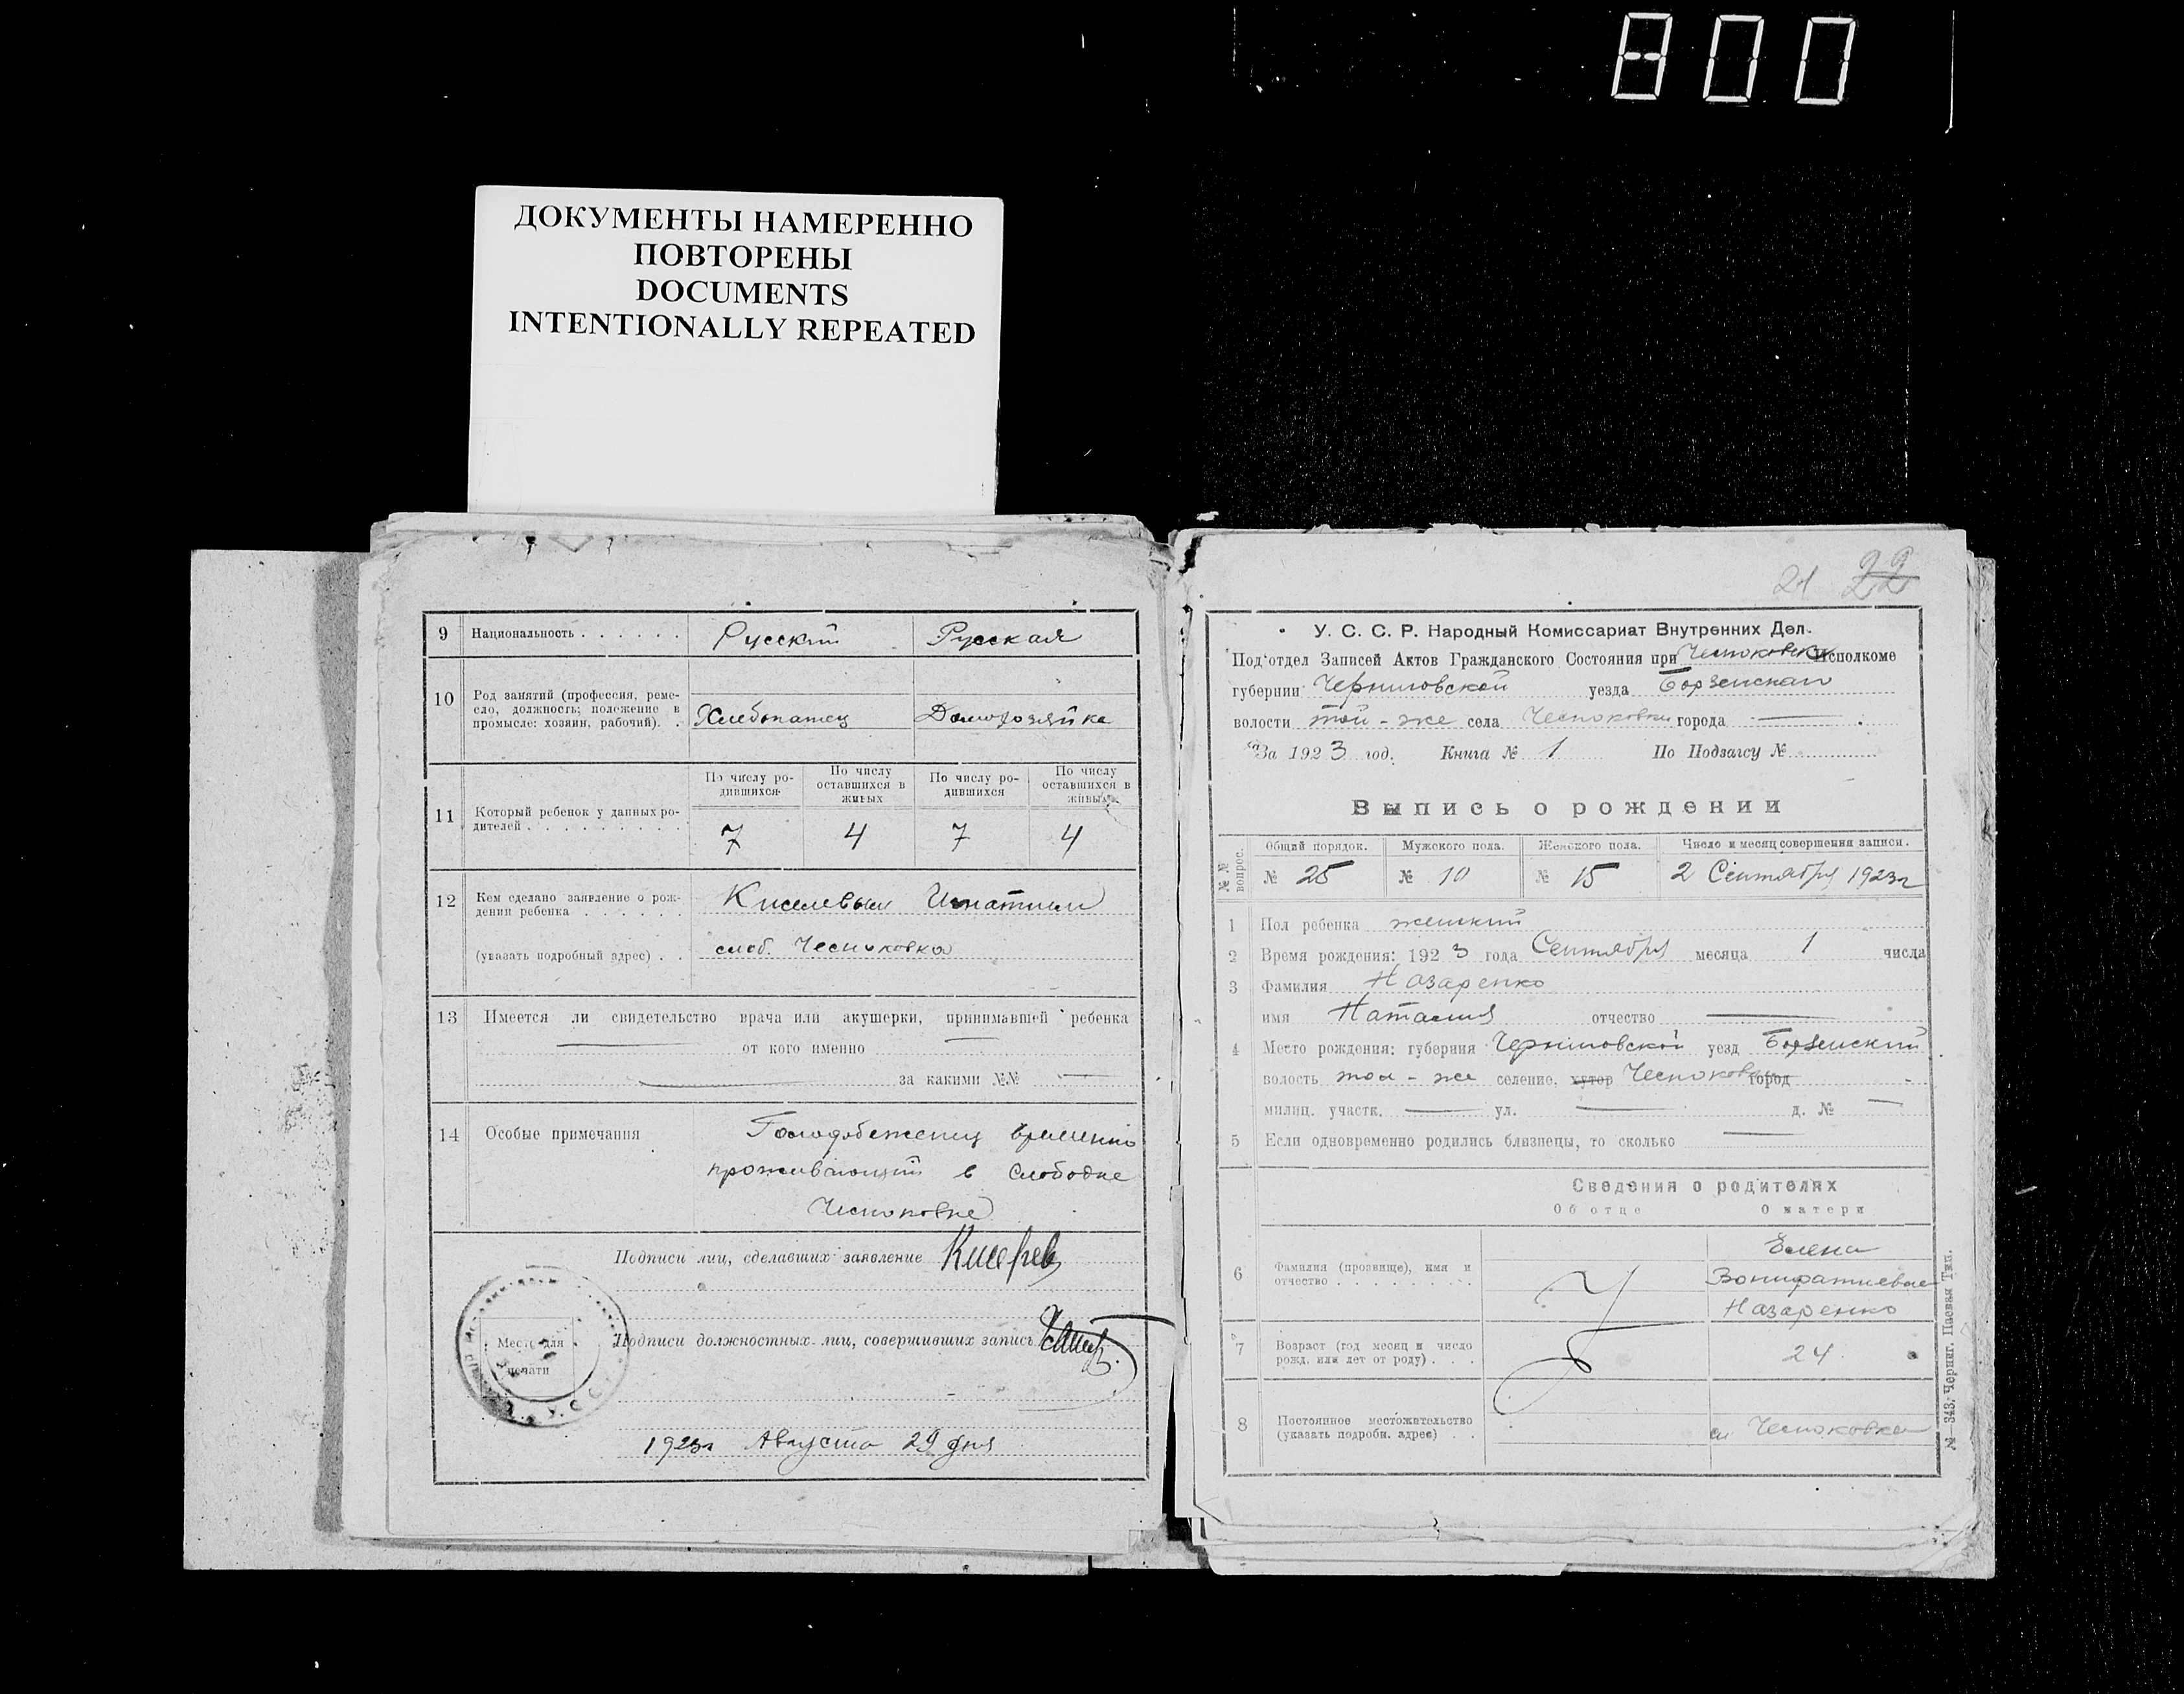 800
ДОКУМЕНТЫ НАМЕРЕННО
ПОВТОРЕНЫ
DOCUMENTS
INTENTIONALLY REPEATED
9 Национальность . . . . . . Русский Русская
10 Род занятий (профессия, реме-
сло, должность; положение в
промысле: хозяин, рабочий). . Хлебопашец Домохозяйка
По числу ро-
дившихся По числу
оставшихся в
живых По числу ро-
дившихся По числу
оставшихся в
живых
11 Который ребенок у данных ро-
дителей . . . . . . . . . . 7 4 7 4
12 Кем сделано заявление о рож-
дении ребенка . . . . . . Киселевым Игнатием
(указать подробный адрес) . . слоб. Чесноковка
13 Имеется ли свидетельство врача или акушерки, принимавшей ребенка
от кого именно
за какими №№
14 Особые примечания Голодобеженец временно
проживающий в Слободке
Чесноковке
Подписи лиц, сделавших заявление
Место для
печати
Подписи должностных лиц, совершивших запись
1923г Августа 29 дня
21 22
У. С. С. Р. Народный Комиссариат Внутренних Дел.
Под'отдел Записей Актов Гражданского Состояния при Чесноковск Исполкоме
губернии Черниговской уезда Борзенскаго
волости той-же села Чесноковки города —
За 1923 год. Книга № 1 По Подзагсу №
Выпись о рождении
№№ вопрос. Общий порядок. Мужского пола. Женского пола. Число и месяц совершения записи.
№ 25 № 10 № 15 2 Сентября 1923г
1 Пол ребенка женский
2 Время рождения: 1923 года Сентября месяца 1 числа
3 Фамилия Назаренко
имя Наталия отчество —
4 Место рождения: губерния Черниговской уезд Борзенский
волость той-же селение, хутор Чесноковка город
милиц. участк. — ул. — д. № —
5 Если одновременно родились близнецы, то сколько —
Сведения о родителях
Об отце О матери
6 Фамилия (прозвище), имя и
отчество . . . . . . . . . Елена
Вонифатиевна
Назаренко
7 Возраст (год месяц и число
рожд. или лет от роду) . . . 24
8 Постоянное местожительство
(указать подробн. адрес) . . сл Чесноковка
№—343. Черниг. Паевая Тип.